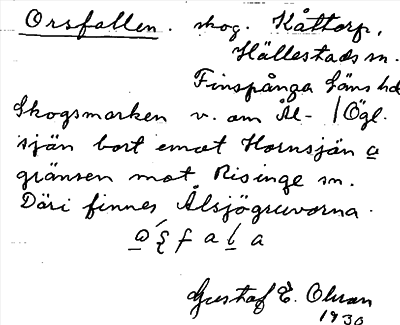 Orsfallen. skog. Kåttorp,
Hällestads sn.
Finspånga läns hd
Skogsmarken v. om Ål- / Ögl.
sjön bort emot Hornsjön o
gränsen mot Risinge sn.
Däri finnes Ålsjögruvorna.
Gustaf E. Olsson
1930